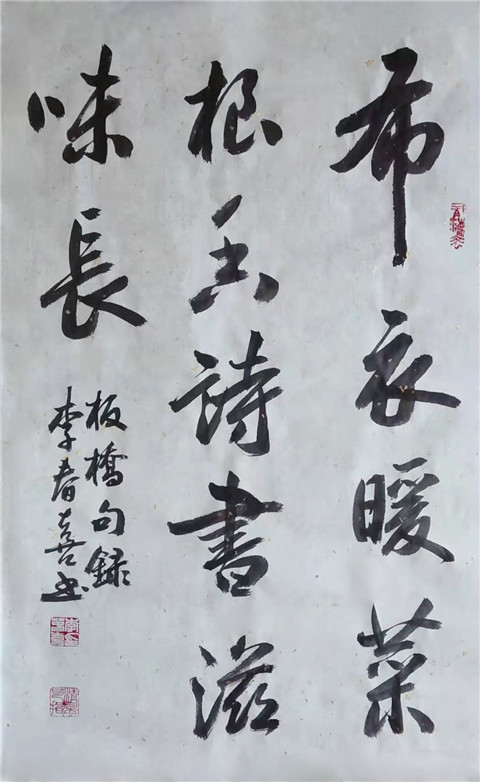 布衣暖菜
根香詩書滋
味長
板橋句録
李春喜书